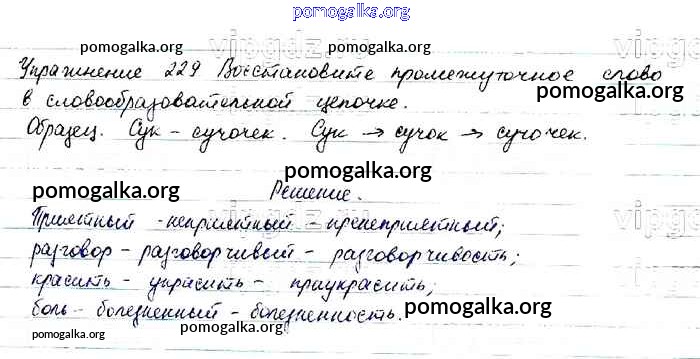 pomogalka.org
pomogalka.org pomogalka.org
Упражнение 229 Восстановите промежуточное слово
в словообразовательной цепочке.
pomogalka.org
Образец. Сук - сучочек. Сук → сучок → сучочек.
pomogalka.org pomogalka.org
Решение.
Приятный - неприятный - пренеприятный;
разговор - разговорчивый - разговорчивость;
красить - украсить - приукрасить;
боль - болезненный - болезненность.
pomogalka.org
pomogalka.org pomogalka.org